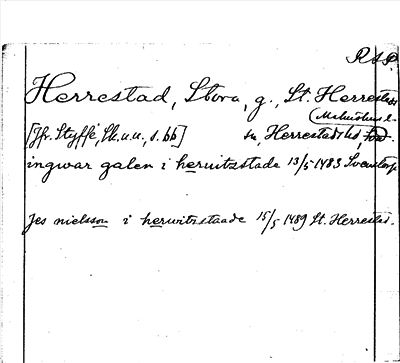 R A P.
Herrestad, Stora, g., St. Herrestads
Malmöhus l.
[Jfr. Styffe, Sk. u. u., s. 66] sn, Herrestads hd,
ingwar galen i heruitzstade 13/5 1483 Svenstorp
Jes nielsson i herwitzstaade 15/5 1489 St. Herrestad.